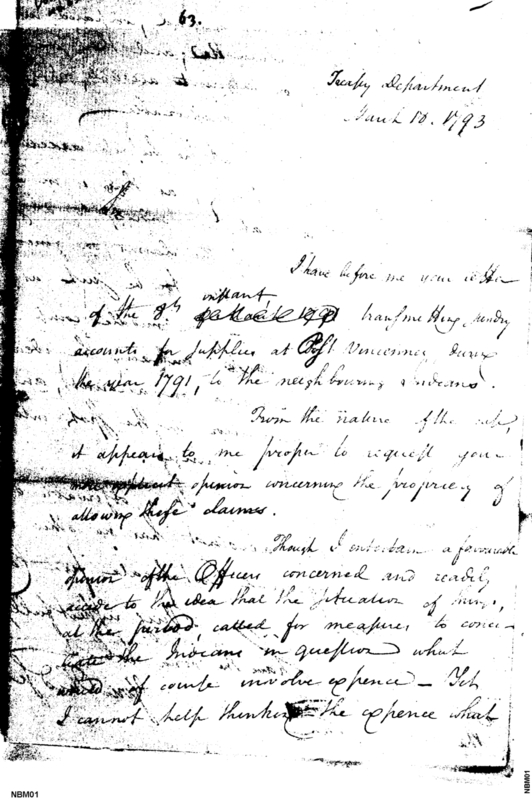 63.
Treasy Department
March 10. 1793
I have before me your letter
of the 8th instant, transmitting sundry
accounts for supplies at Post Vincennes, during
the year 1791, to the neighbouring Indians.
From the nature of the case,
it appears to me proper to request your
more explicit opinion concerning the propriety of
allowing these claimes.
Though I entertain a favourable
opinion of the Officers concerned and readily
accede to the idea that the situation of things,
at the period, called for measures to conci-
liate the Indians in question which
would of course involve expence – Yet
I cannot help thinking the expence what
the
NBM01
NBM01